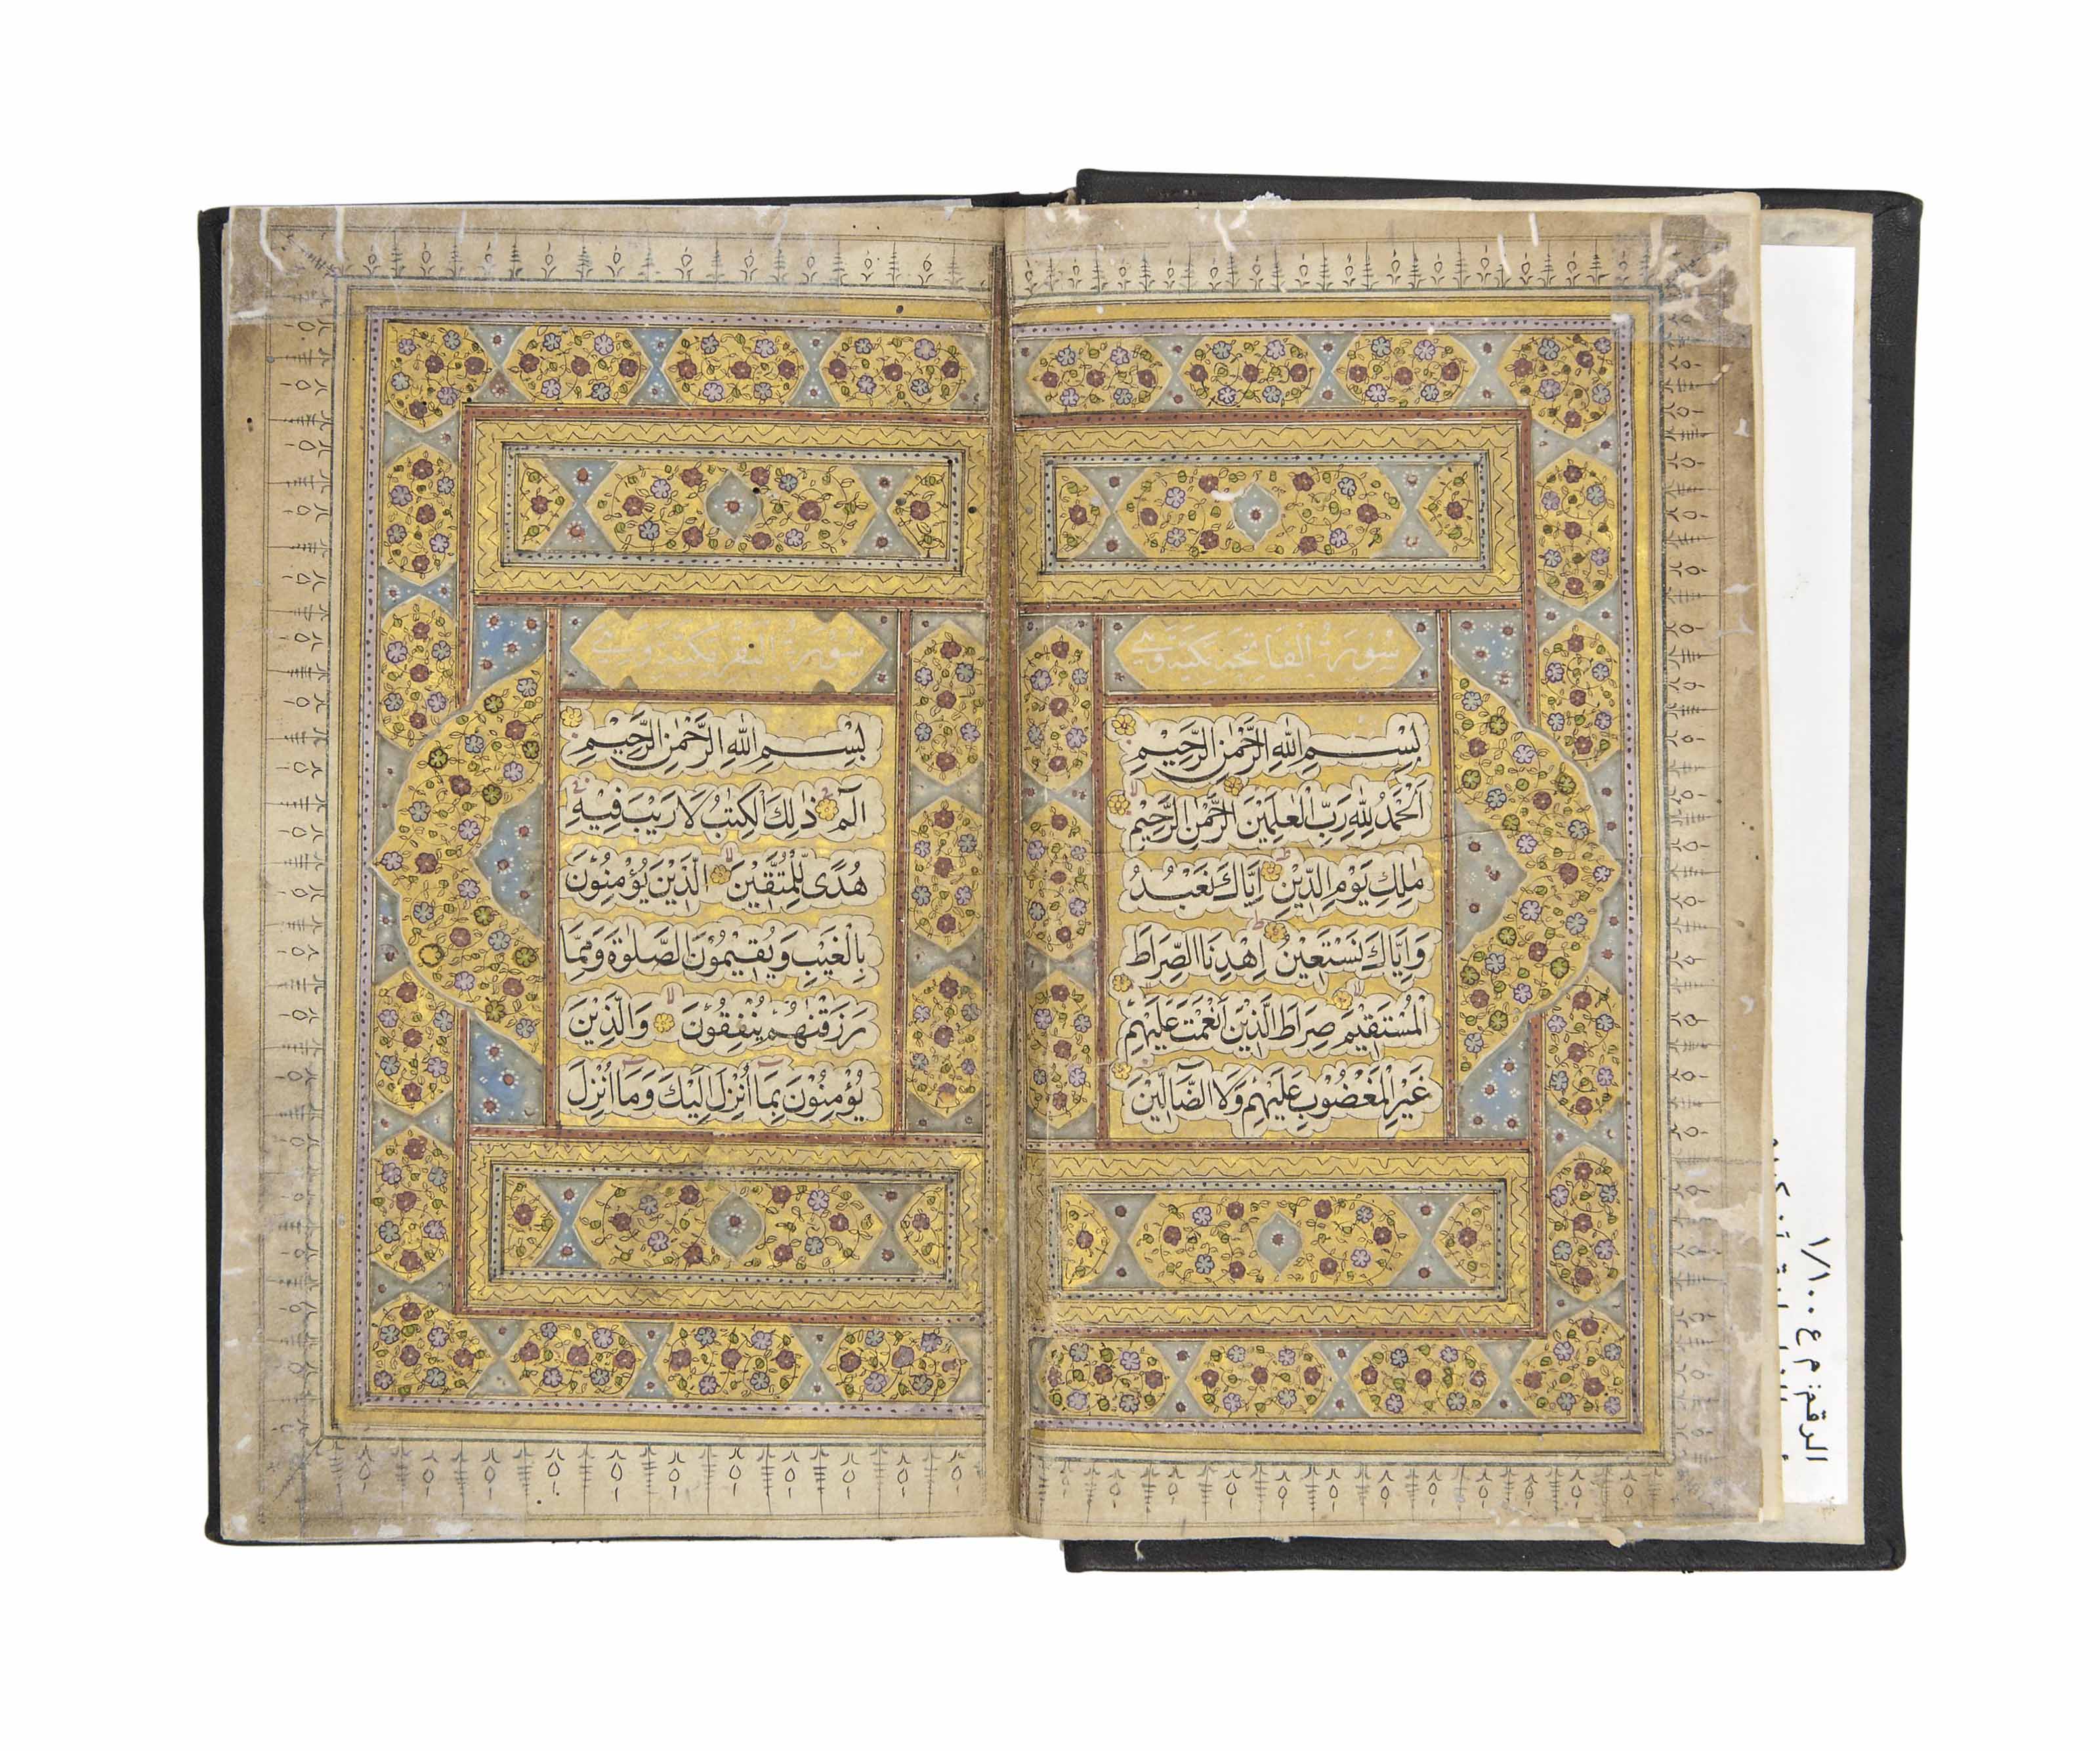 سورة الفاتحة مكية وهي
بِسْمِ اللّٰهِ الرَّحْمٰنِ الرَّحِيْمِ
اَلْحَمْدُ لِلّٰهِ رَبِّ الْعٰلَمِيْنَ الرَّحْمٰنِ الرَّحِيْمِ
مٰلِكِ يَوْمِ الدِّيْنِ اِيَّاكَ نَعْبُدُ
وَاِيَّاكَ نَسْتَعِيْنُ اِهْدِنَا الصِّرَاطَ
الْمُسْتَقِيْمَ صِرَاطَ الَّذِيْنَ اَنْعَمْتَ عَلَيْهِمْ
غَيْرِ الْمَغْضُوْبِ عَلَيْهِمْ وَلَا الضَّآلِّيْنَ
سورة البقر
بِسْمِ اللّٰهِ الرَّحْمٰنِ الرَّحِيْمِ
الٓمٓ ذٰلِكَ الْكِتٰبُ لَا رَيْبَ فِيْهِ
هُدًى لِّلْمُتَّقِيْنَ الَّذِيْنَ يُؤْمِنُوْنَ
بِالْغَيْبِ وَيُقِيْمُوْنَ الصَّلٰوةَ وَمِمَّا
رَزَقْنٰهُمْ يُنْفِقُوْنَ وَالَّذِيْنَ
يُؤْمِنُوْنَ بِمَآ اُنْزِلَ اِلَيْكَ وَمَآ اُنْزِلَ
الرقم: م ع ١/١٠٠